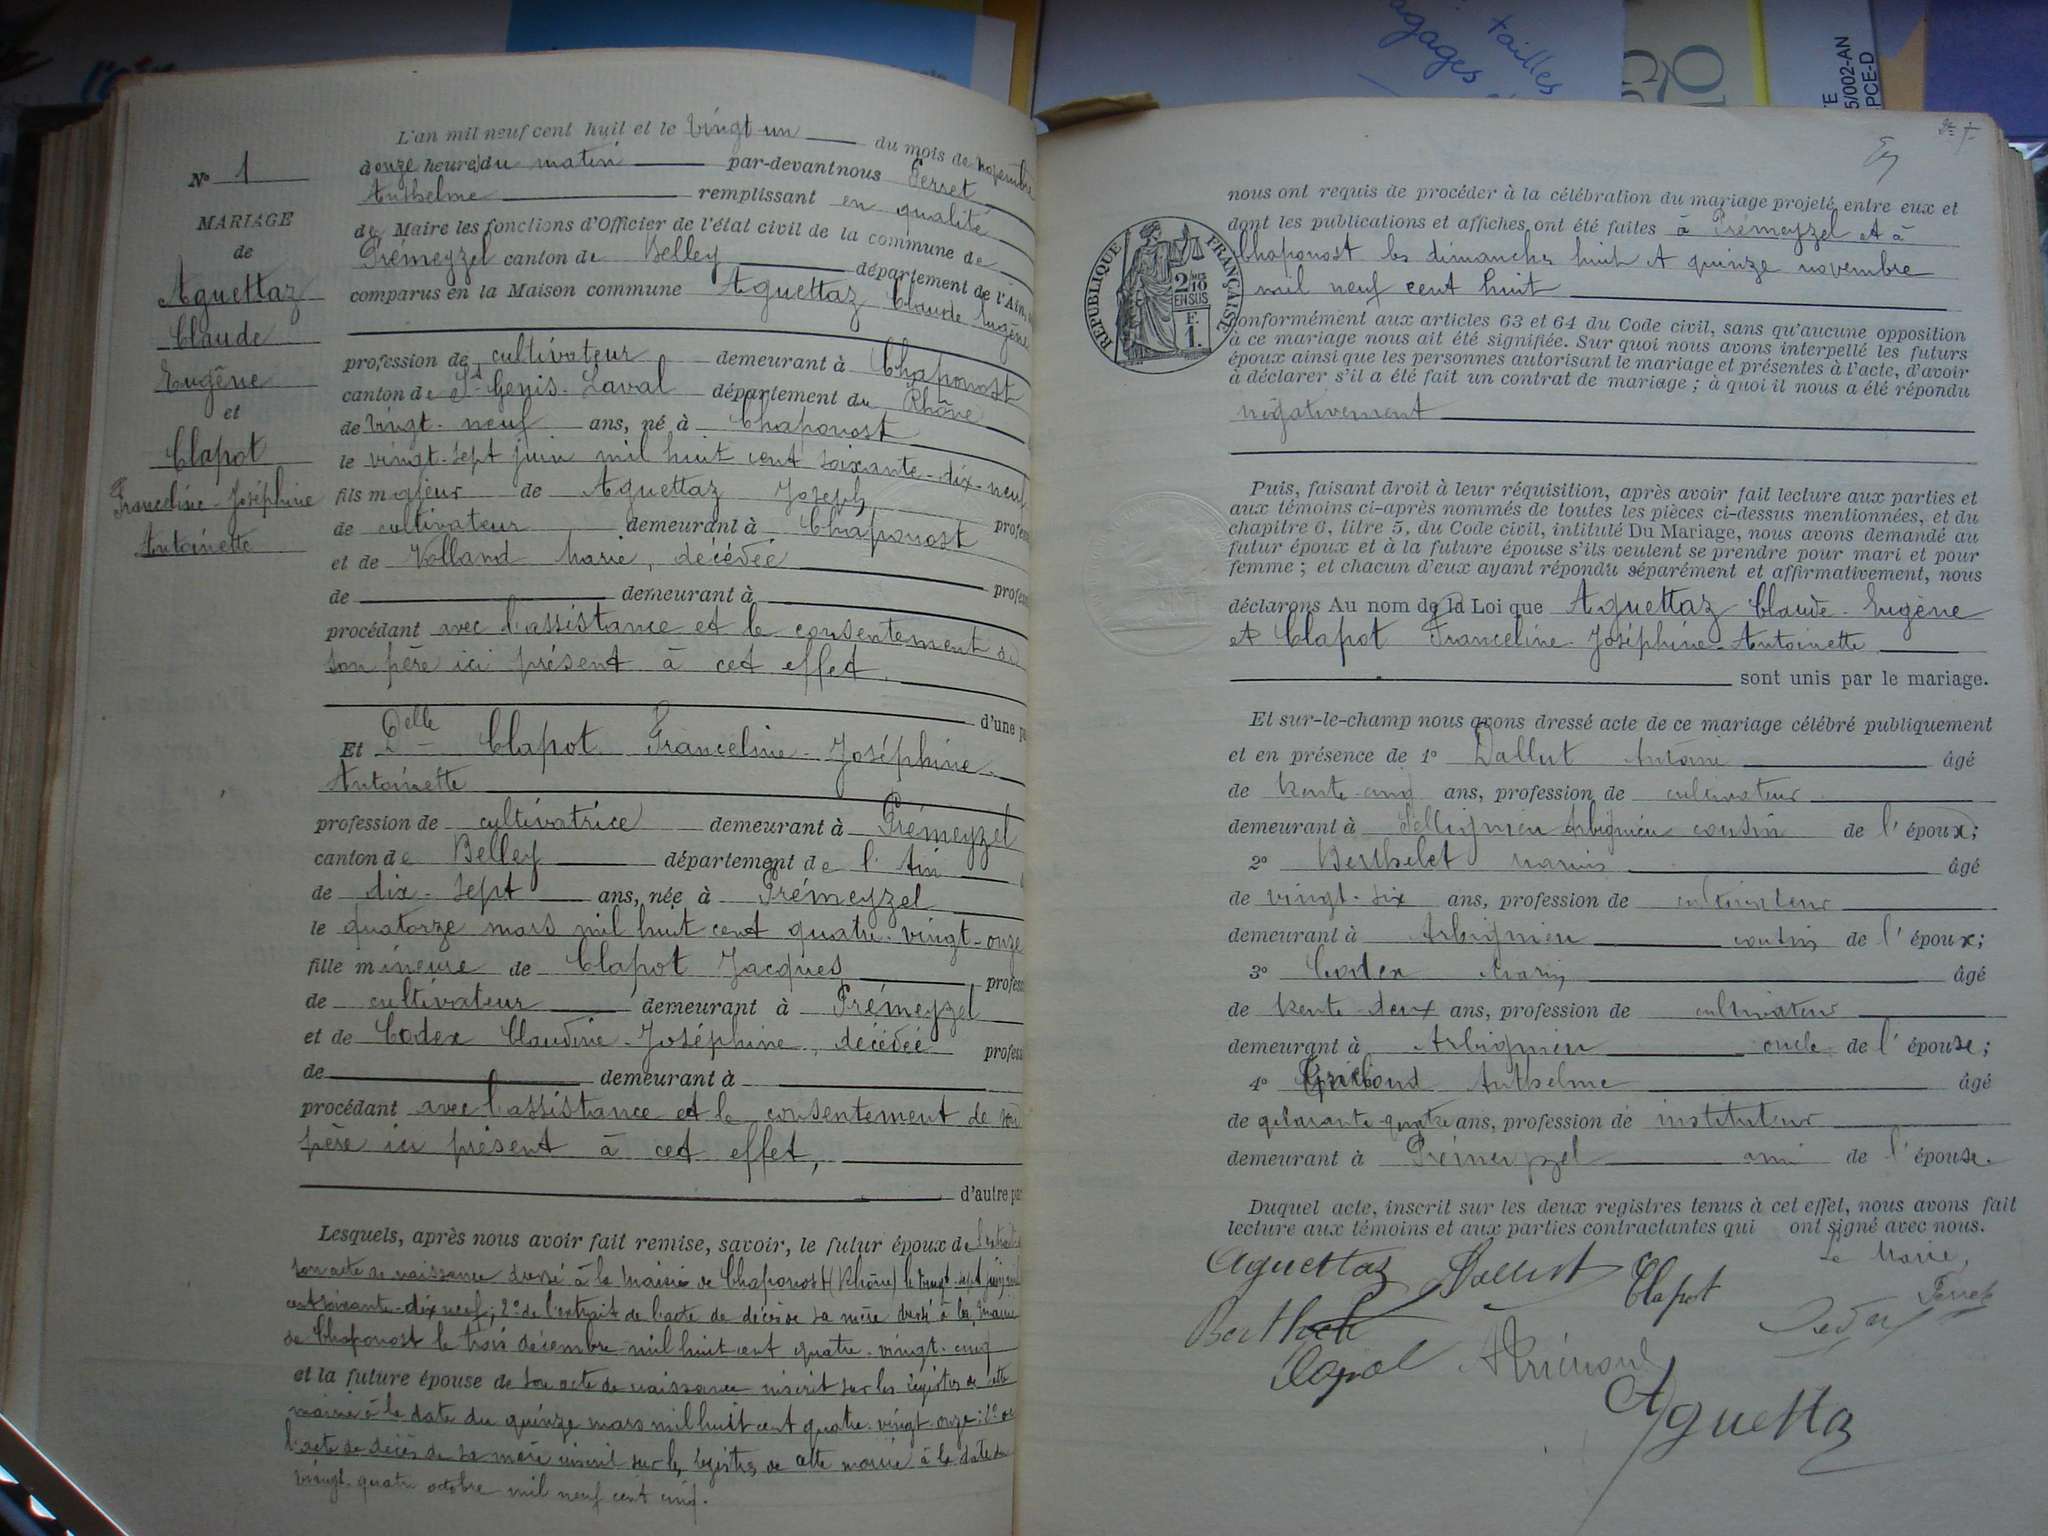 tailles
agages
5/002-AN
PCE-D
L'an mil neuf cent huit et le vingt-un du mois de novembre
à onze heures du matin par-devant nous Perret
Anthelme remplissant en qualité
de Maire les fonctions d'Officier de l'état civil de la commune de
Prémeyzel canton de Belley département de l'Ain,
comparus en la Maison commune Aguettaz Claude Eugène
profession de cultivateur demeurant à Chaponost
canton de St Genis-Laval département du Rhône
de vingt-neuf ans, né à Chaponost
le vingt-sept juin mil huit cent soixante-dix-neuf
fils majeur de Aguettaz Joseph profess
de cultivateur demeurant à Chaponost
et de Volland Marie, décédée
de demeurant à profess
procédant avec l'assistance et le consentement de
son père ici présent à cet effet
d'une pa
Et Delle Clapot Franceline-Joséphine
Antoinette
profession de cultivatrice demeurant à Prémeyzel
canton de Belley département de l'Ain
de dix-sept ans, née à Prémeyzel
le quatorze mars mil huit cent quatre-vingt-onze
fille mineure de Clapot Jacques profess
de cultivateur demeurant à Prémeyzel
et de Codex Claudine-Joséphine, décédée profess
de demeurant à
procédant avec l'assistance et le consentement de son
père ici présent à cet effet,
d'autre par
Lesquels, après nous avoir fait remise, savoir, le futur époux de l'extrait
son acte de naissance dressé à la mairie de Chaponost (Rhône) le vingt-sept juin mil
cent soixante-dix neuf; 2° de l'extrait de l'acte de décès de sa mère dressé à la mairie
de Chaponost le trois décembre mil huit cent quatre-vingt-cinq
et la future épouse de son acte de naissance inscrit sur les registres de cette
mairie à la date du quinze mars mil huit cent quatre-vingt-onze; 2° de
l'acte de décès de sa mère inscrit sur les registres de cette mairie à la date du
vingt-quatre octobre mil neuf cent cinq.
N° 1
MARIAGE
de
Aguettaz
Claude
Eugène
et
Clapot
Franceline-Joséphine
Antoinette
RÉPUBLIQUE FRANÇAISE
2/10
EN SUS
F.
1.
nous ont requis de procéder à la célébration du mariage projeté entre eux et
dont les publications et affiches ont été faites à Prémeyzel et à
Chaponost les dimanches huit et quinze novembre
mil neuf cent huit
conformément aux articles 63 et 64 du Code civil, sans qu'aucune opposition
à ce mariage nous ait été signifiée. Sur quoi nous avons interpellé les futurs
époux ainsi que les personnes autorisant le mariage et présentes à l'acte, d'avoir
à déclarer s'il a été fait un contrat de mariage; à quoi il nous a été répondu
négativement
Puis, faisant droit à leur réquisition, après avoir fait lecture aux parties et
aux témoins ci-après nommés de toutes les pièces ci-dessus mentionnées, et du
chapitre 6, titre 5, du Code civil, intitulé Du Mariage, nous avons demandé au
futur époux et à la future épouse s'ils veulent se prendre pour mari et pour
femme; et chacun d'eux ayant répondu séparément et affirmativement, nous
déclarons Au nom de la Loi que Aguettaz Claude-Eugène
et Clapot Franceline-Joséphine-Antoinette
sont unis par le mariage.
Et sur-le-champ nous avons dressé acte de ce mariage célébré publiquement
et en présence de 1° Dallut Antoine âgé
de trente-cinq ans, profession de cultivateur
demeurant à Arbignieu cousin de l'époux;
2° Berthelet Marius âgé
de vingt-six ans, profession de cultivateur
demeurant à Arbignieu cousin de l'époux;
3° Codex Marin âgé
de trente-deux ans, profession de cultivateur
demeurant à Arbignieu oncle de l'épouse;
4° Anthelme âgé
de quarante-quatre ans, profession de instituteur
demeurant à Prémeyzel ami de l'épouse.
Duquel acte, inscrit sur les deux registres tenus à cet effet, nous avons fait
lecture aux témoins et aux parties contractantes qui ont signé avec nous.
Le Maire,
Aguettaz Dallut Clapot
Perret
Clapot
Aguettaz